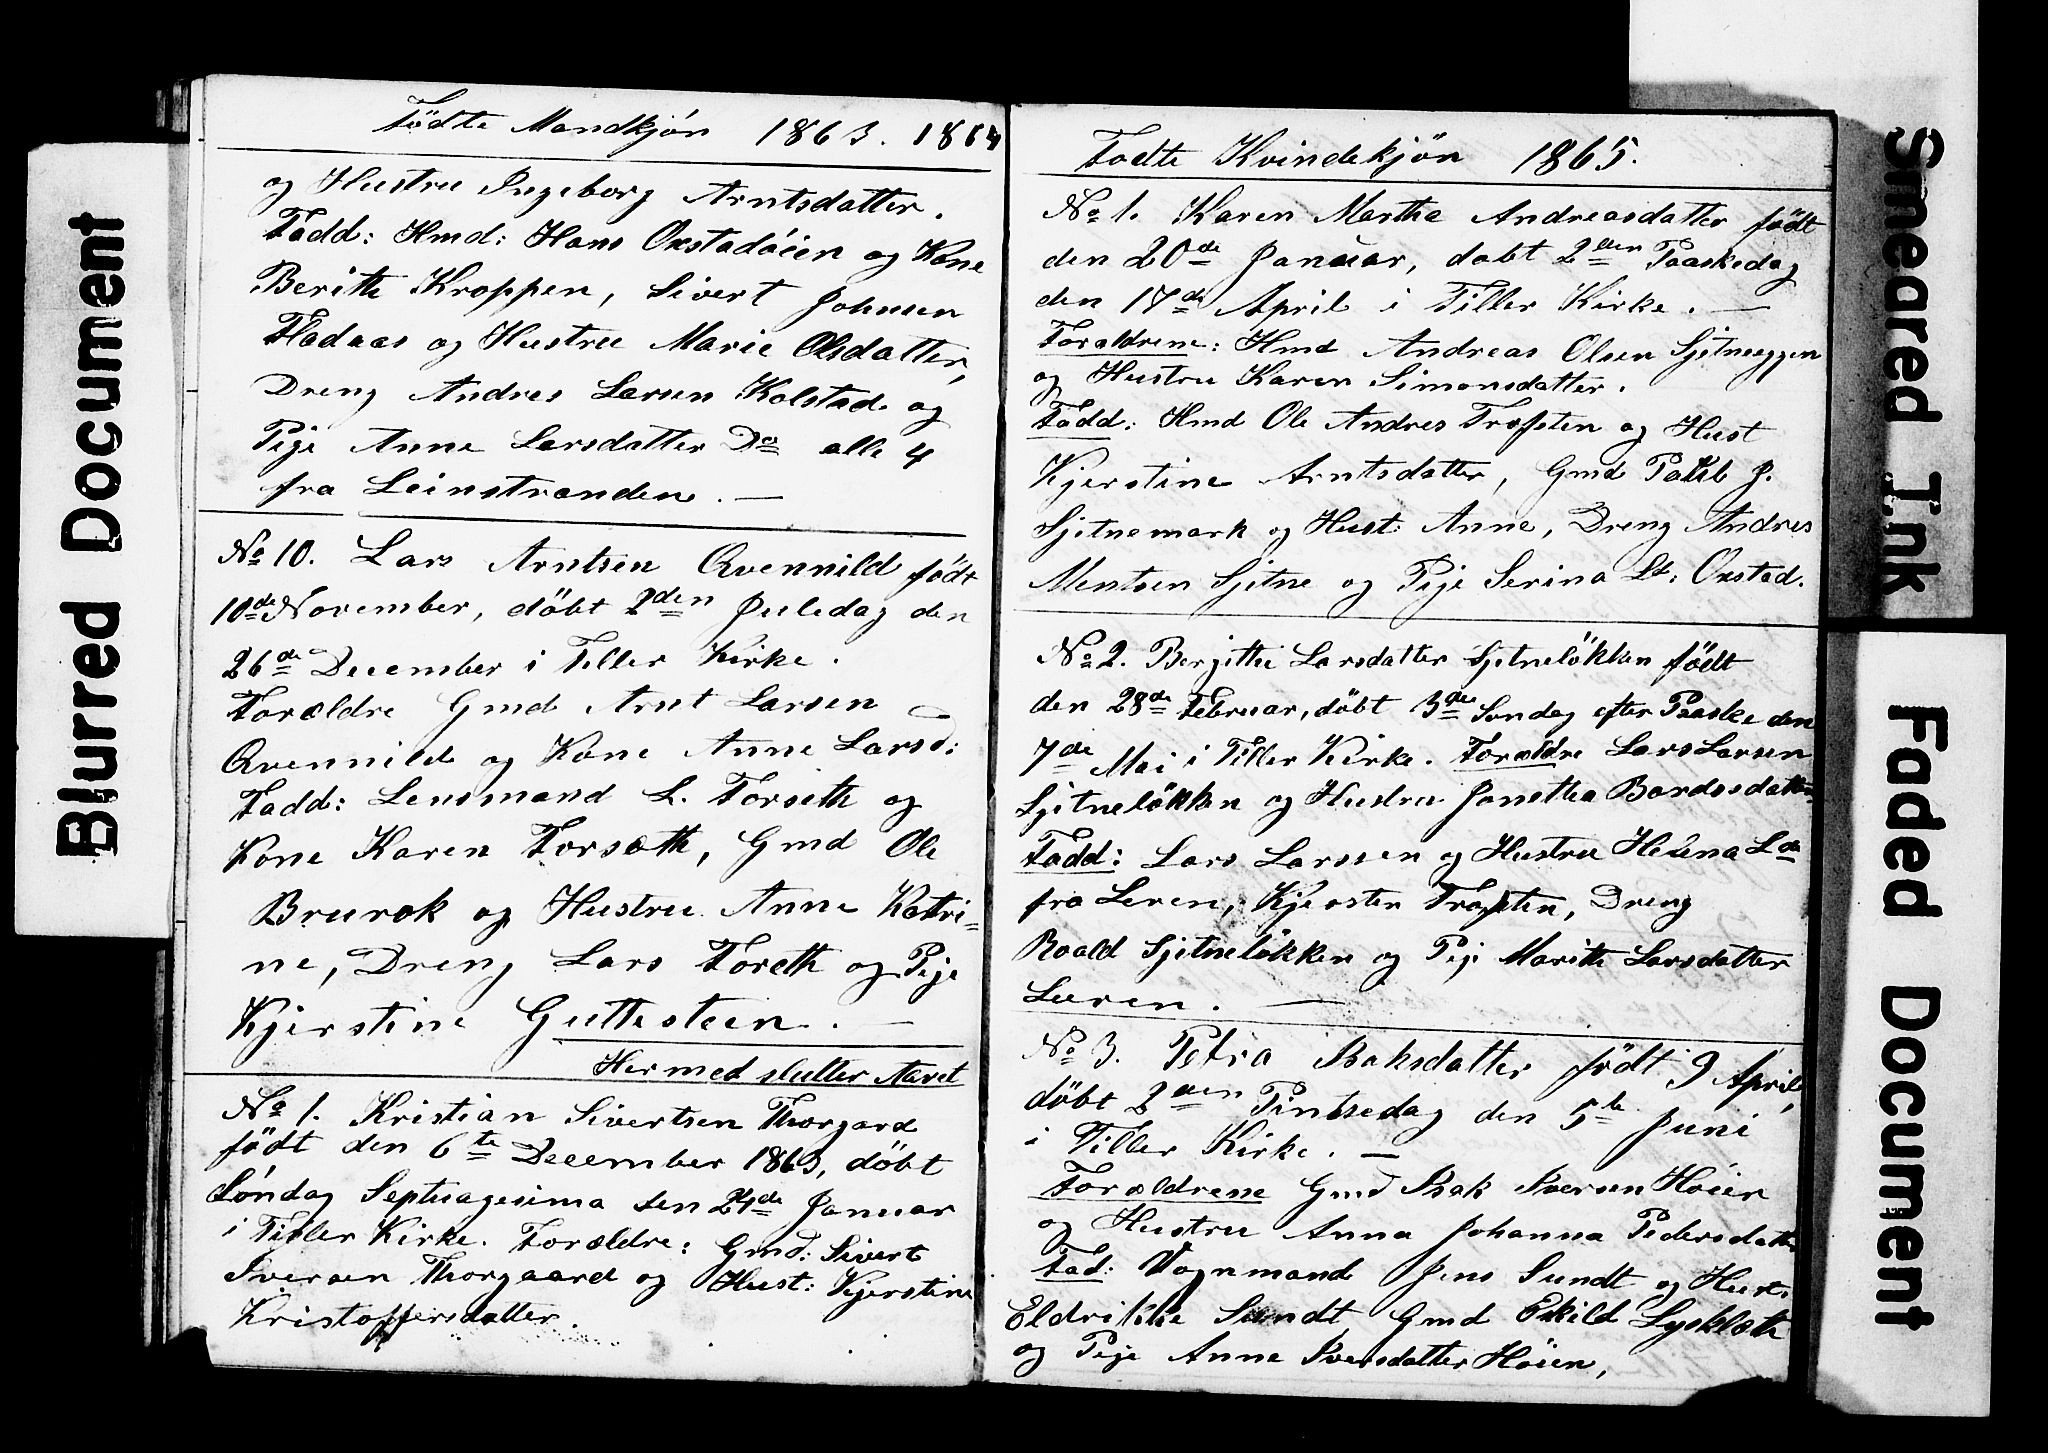 Blurred Document
Födte Mandkjön 1863. 1864
og Hustru Ingeborg Arntsdatter.
Fadd: Hmd: Hans Oxstadöien og Kone
Berith Kroppen, Sivert Johnsen
Fladaas og Hustru Marie Olsdatter,
Dreng Andres Larsen Kolstad og
Pige Anne Larsdatter Do alle 4
fra Leinstranden. —
No 10. Lars Arntsen Qvennild födt
10de November, döbt 2den Juledag den
26de December i Tiller Kirke.
Forældre Gmd Arnt Larsen
Qvennild og Kone Anne Larsd:
Fadd: Lensmand L. Forseth og
Kone Karen Forsæth, Gmd Ole
Brurok og Hustru Anne Katri-
ne, Dreng Lars Foreth og Pige
Kjerstine Guttesteen. —
Hermed slutter Aaret
No 1. Kristian Sivertsen Thorgard
födt den 6te December 1863, döbt
Söndag Septuagesima den 24de Januar
i Tiller Kirke. Forældre: Gmd: Sivert
Iversen Thorgaard og Hust: Kjerstine
Kristoffersdatter.
Fodte Kvindekjön 1865.
No 1. Karen Martha Andreasdatter födt
den 20de Januar, dobt 2den Paaskedag
den 17de April i Tiller Kirke. —
Forældrene: Hmd Andreas Olsen Sjetneeggen
og Hustru Karen Simonsdatter.
Fadd: Hmd Ole Andres Trosten og Hust
Kjerstine Arntsdatter, Gmd J.
Sjetnemark og Hust: Anne, Dreng Andres
Mentsen Sjetne og Pige Serina Ld: Oxstad.
No 2. Bergitte Larsdatter Sjetnelökken födt
den 28de Februar, döbt 3de Sondag efter Paaske den
7de Mai i Tiller Kirke. Forældre Lars Larsen
Sjetnelökken og Hustru Jonetha Bardosdatter
Fadd: Lars Larssen og Hustru L
fra Leren, Kjersten Trosten, Dreng
Roald Sjetnelökken og Pige Marith Larsdatter
Leren. —
No 3. Petra Isaksdatter födt 9 April,
döbt 2den Pintsedag den 5te Juni
i Tiller Kirke. —
Forældrene Gmd Isak Iversen Höien
og Hustru Anna Johanna Pedersdatter
Fad: Vognmand Jens Sundt og Hust:
Eldrikke Sundt, Gmd Eskild Lysklæth
og Pige Anne Iversdatter Höien,
Smeared Ink
Faded Document